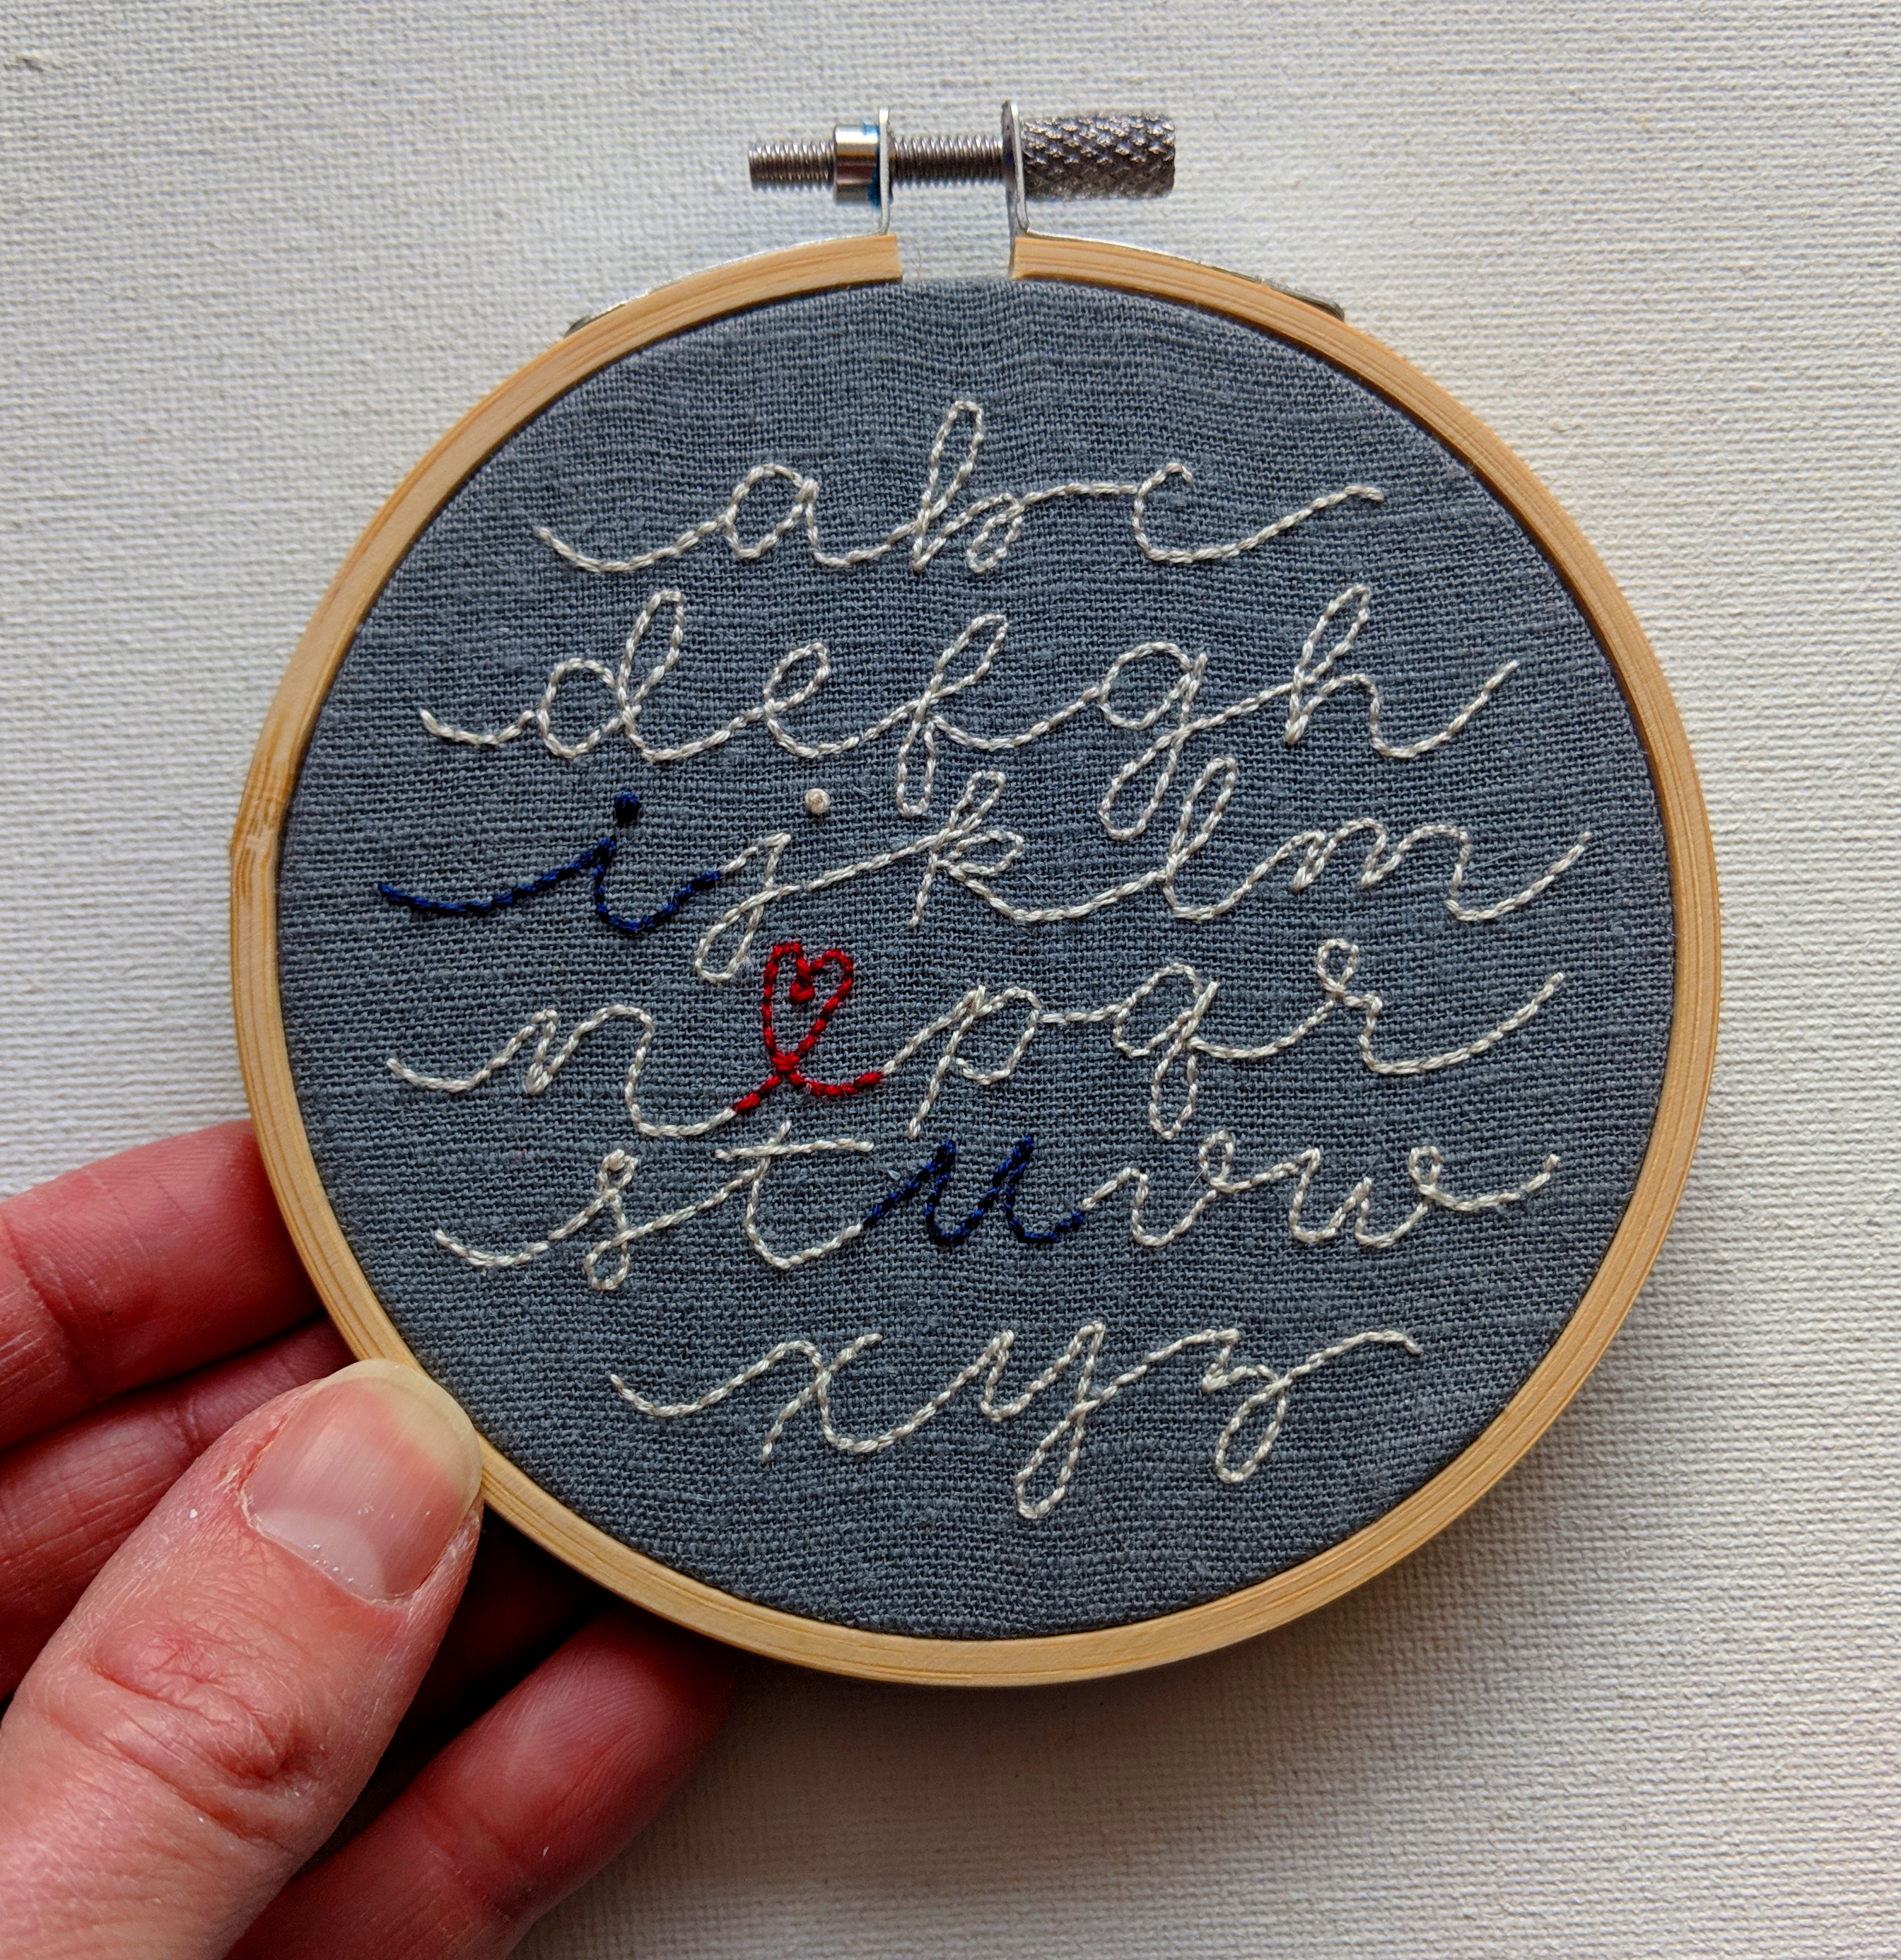 abc
defgh
ijklm
n❤pqr
stuvw
xyz